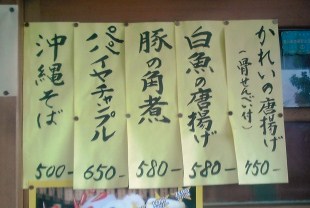 かれいの唐揚げ
(骨せんべい付)
450-
白魚の唐揚げ
580-
豚の角煮
580-
パパイヤチャンプル
650-
沖縄そば
500-